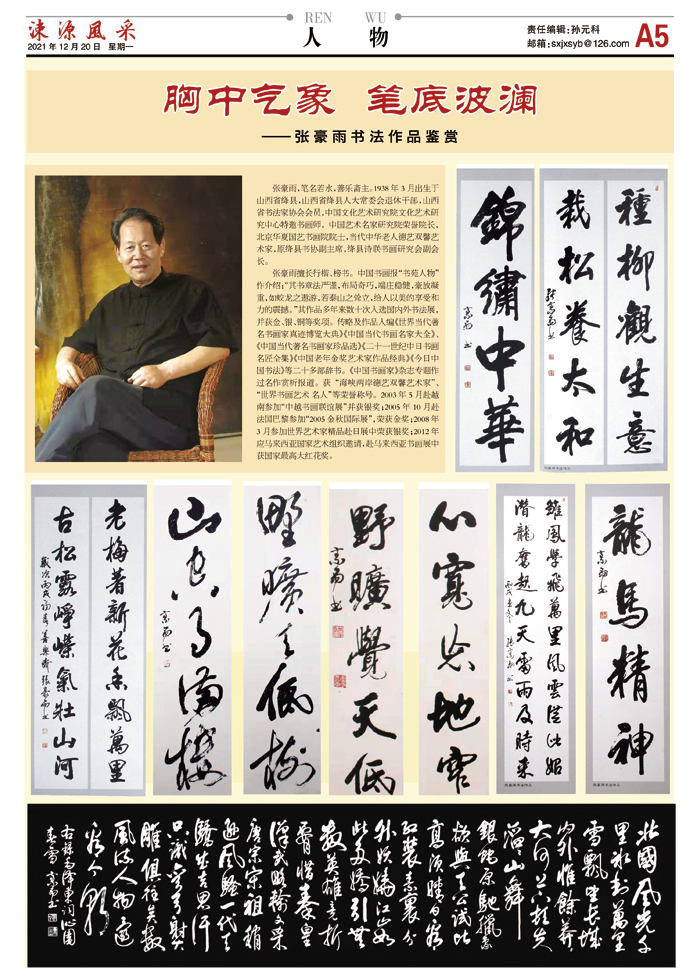 涑源風采
2021 年 12 月 20 日 星期一
REN WU
人 物
责任编辑:孙元科
邮箱:sxjxsyb@126.com
A5
胸中气象 笔底波澜
——张豪雨书法作品鉴赏
张豪雨,笔名若水,善乐斋主。1938 年 3 月出生于
山西省绛县,山西省绛县人大常委会退休干部,山西
省书法家协会会员,中国文化艺术研究院文化艺术研
究中心特邀书画师,中国艺术名家研究院荣誉院长,
北京华夏国艺书画院院士,当代中华老人德艺双馨艺
术家,原绛县书协副主席,绛县诗联书画研究会副会
长。
张豪雨擅长行楷、榜书。中国书画报“书苑人物”
作介绍:“其书章法严谨,布局奇巧,端庄稳健,豪放凝
重,如蛟龙之遨游,若泰山之耸立,给人以美的享受和
力的震撼。”其作品多年来数十次入选国内外书法展,
并获金、银、铜等奖项。传略及作品入编《世界当代著
名书画家真迹博览大典》《中国当代书画名家大全》、
《中国当代著名书画家珍品选》《二十一世纪中日书画
名匠全集》《中国老年金奖艺术家作品经典》《今日中
国书法》等二十多部辞书。《中国书画家》杂志专题作
过名作赏析报道。获“海峡两岸德艺双馨艺术家”、
“世界书画艺术 名人”等荣誉称号。2003 年 5 月赴越
南参加“中越书画联谊展”并获银奖;2005 年 10 月赴
法国巴黎参加“2005 金秋国际展”,荣获金奖;2008 年
3 月参加世界艺术家精品赴日展中荣获银奖;2012 年
应马来西亚国家艺术组织邀请,赴马来西亚书画展中
获国家最高大红花奖。
錦繡中華
豪雨书
種柳觀生意
栽松養太和
老梅著新花香飄萬里
古松露崢嶸氣壯山河
山空月滿樓
豪雨书
野曠天低樹
野曠覺天低
豪雨书
心寬忘地窄
雛鳳學飛萬里風雲從此始
潛龍奮起九天雷雨及時来
龍馬精神
豪雨书
北國風光千
里冰封萬里
雪飄望長城
內外惟餘莽莽
大河上下頓失
滔滔山舞
銀蛇原馳蠟象
欲與天公試比
高須晴日看
紅裝素裹分
外妖嬈江山如
此多嬌引無
數英雄競折
腰惜秦皇
漢武略輸文采
唐宗宋祖稍
遜風騷一代天
驕成吉思汗
只識彎弓射大
雕俱往矣數
風流人物還
看今朝
右錄毛澤東詞沁園
春雪 豪雨书